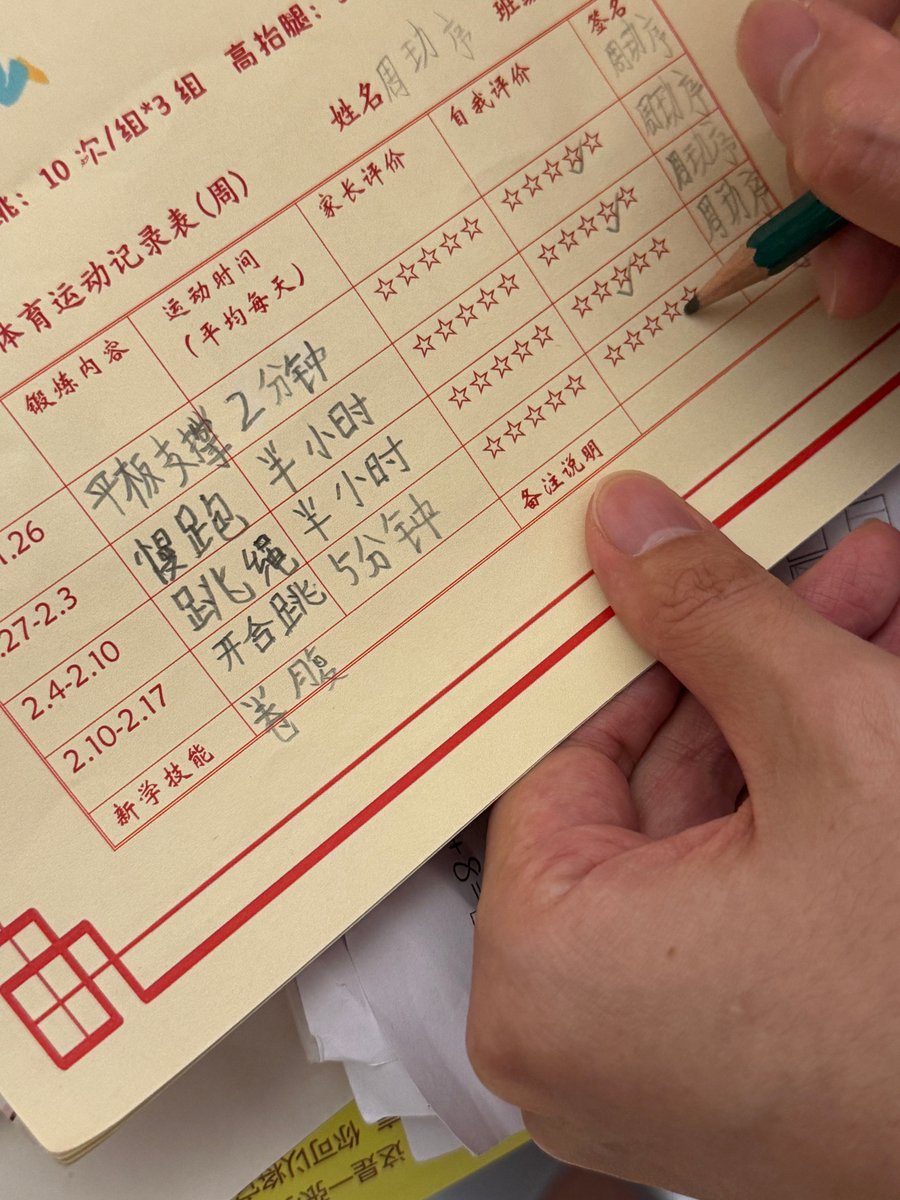 跳：10 次/组*3 组 高抬腿：
体育运动记录表（周） 姓名 周玏序
锻炼内容 运动时间（平均每天） 家长评价 自我评价 签名
1.26 平板支撑 2分钟 ☆☆☆☆☆ ☆☆☆☆☆ 周玏序
.27-2.3 慢跑 半小时 ☆☆☆☆☆ ☆☆☆☆☆ 周玏序
2.4-2.10 跳绳 半小时 ☆☆☆☆☆ ☆☆☆☆☆ 周玏序
2.10-2.17 开合跳 5分钟 ☆☆☆☆☆ ☆☆☆☆☆ 周玏序
新学技能 卷腹 备注说明
你可以将
这是一张